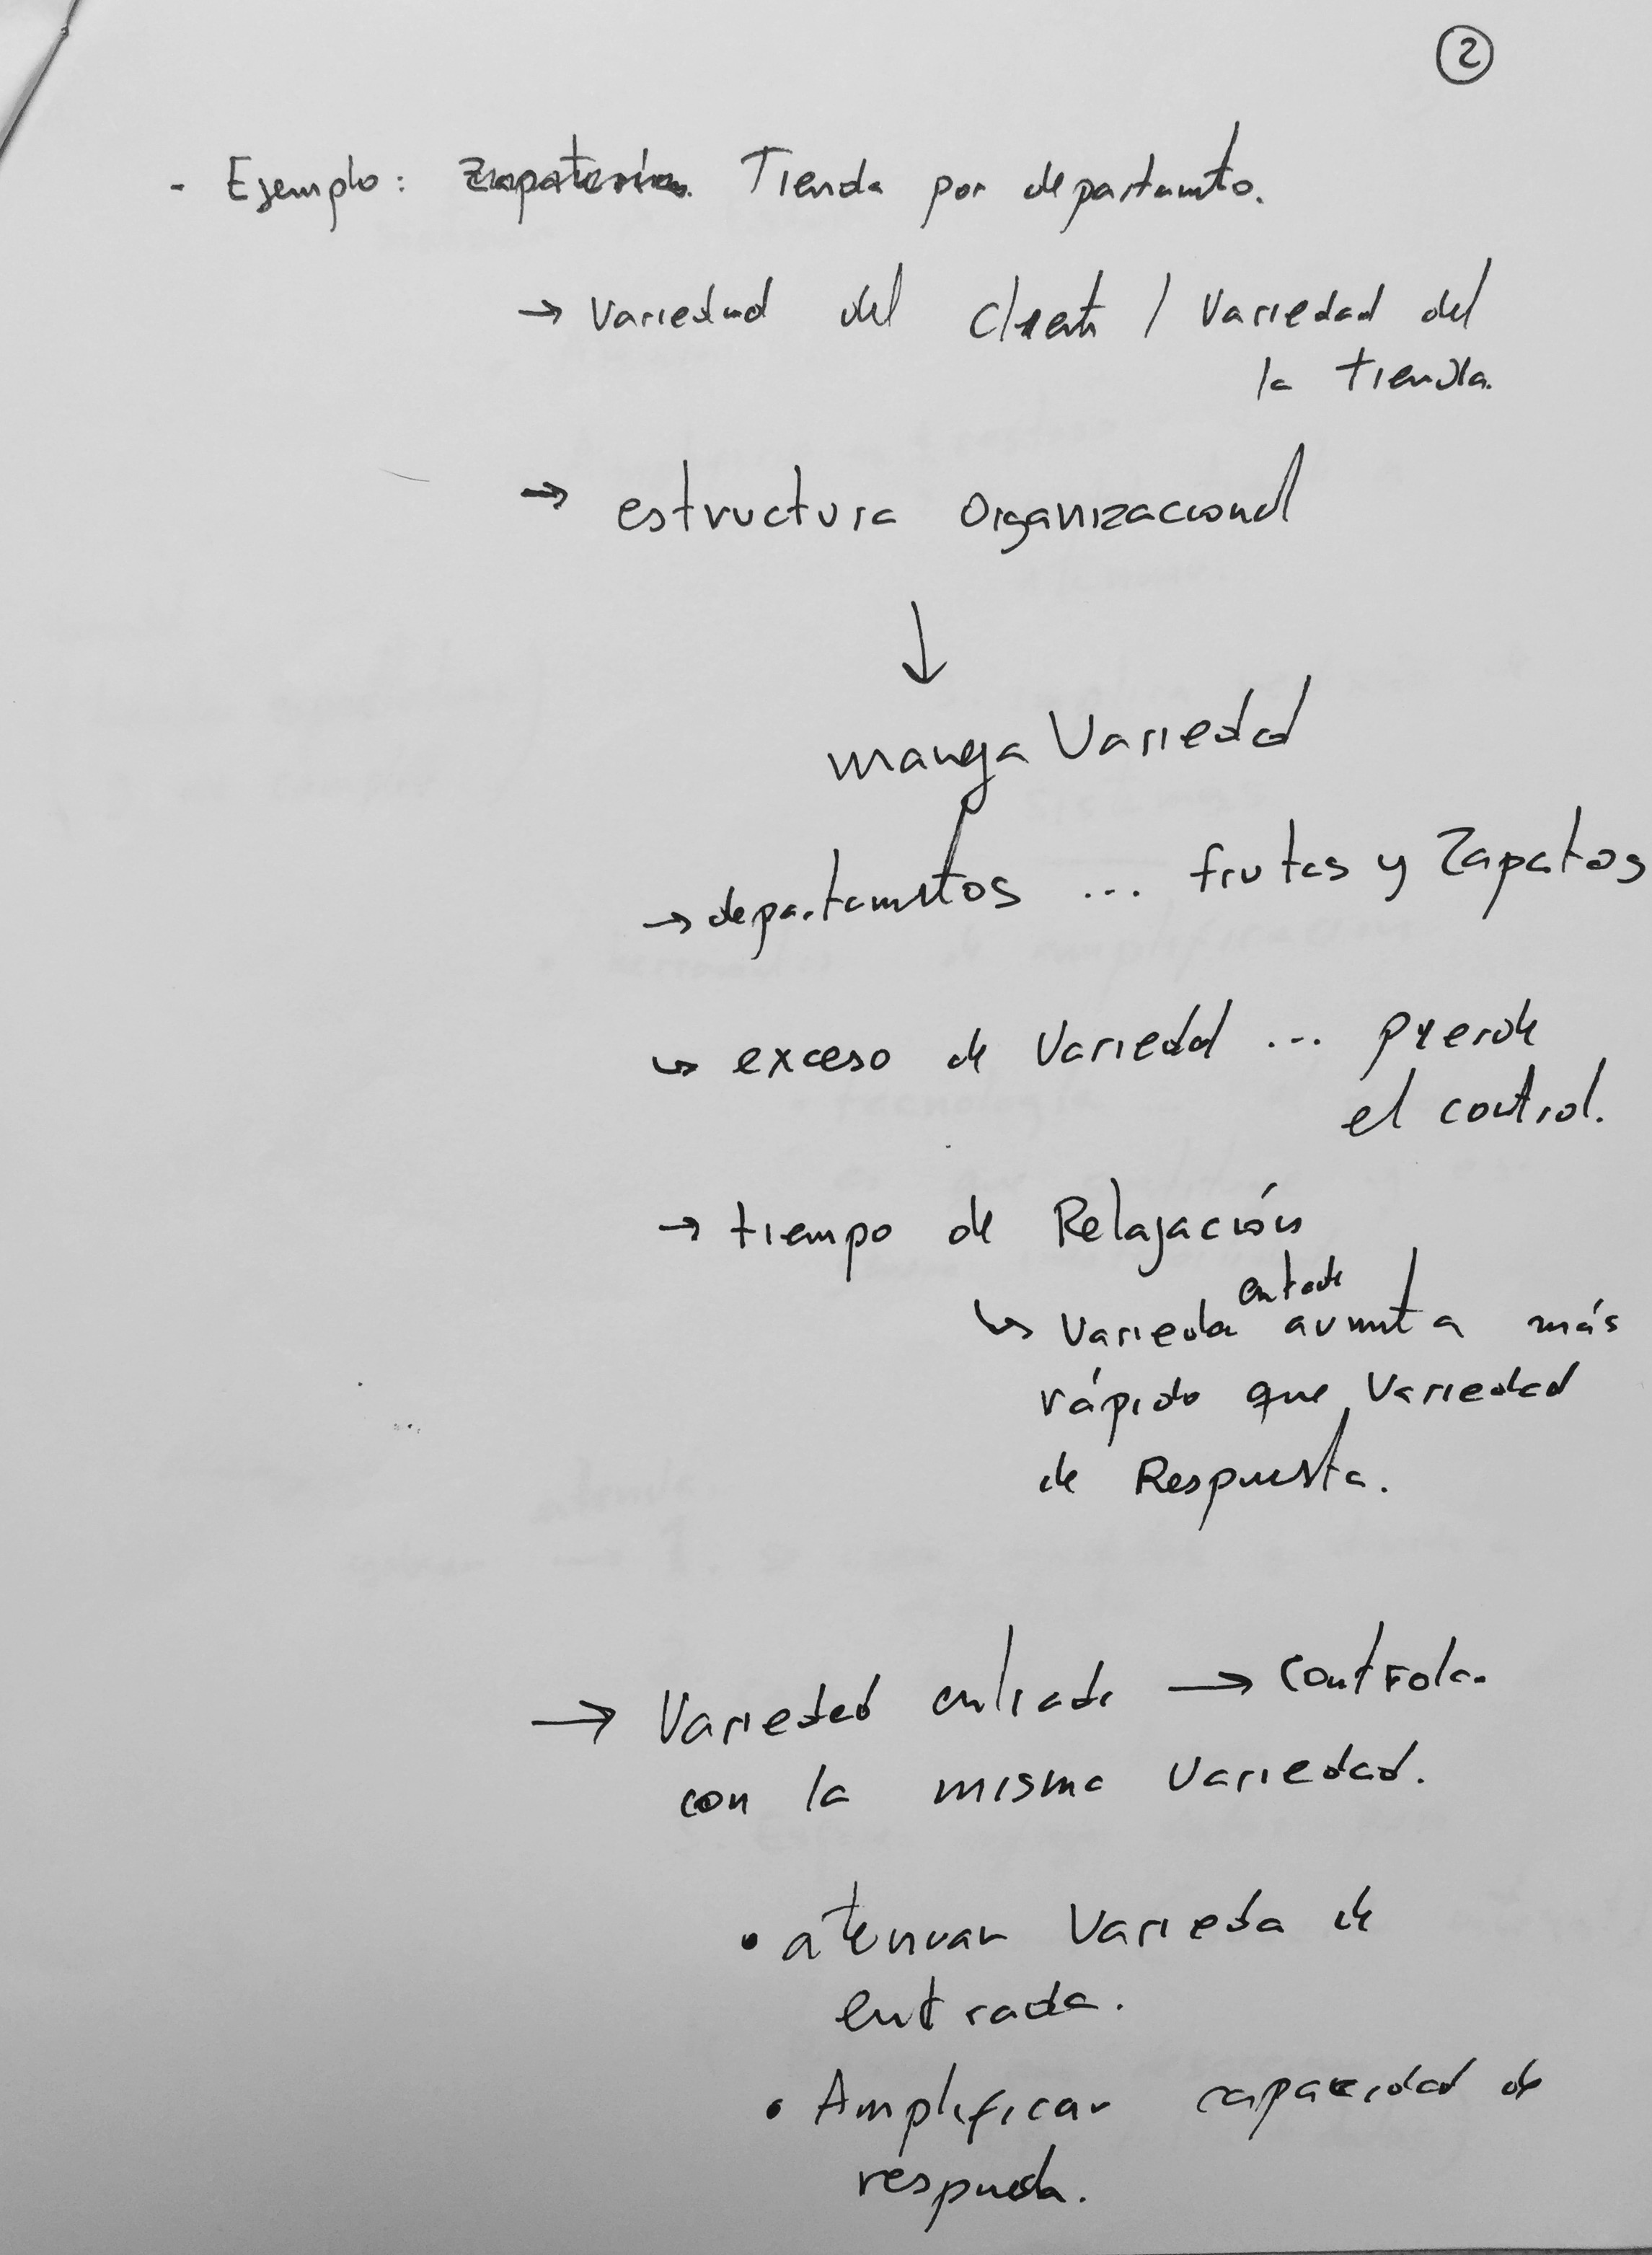 2
- Ejemplo: Zapatería. Tienda por departamto.
→ Variedad del cliente / Variedad del
la tienda.
→ estructura organizacional
↓
maneja Variedad
→ departamtos ... frutas y Zapatos
↳ exceso de Variedad ... pierde
el control.
→ tiempo de Relajación
entrada
↳ Varieda aumta más
rápido que Variedad
de Respuesta.
→ Variedad entrada → controla.
con la misma Variedad.
• atenuar Varieda de
entrada.
• Amplificar capacidad de
respuesta.